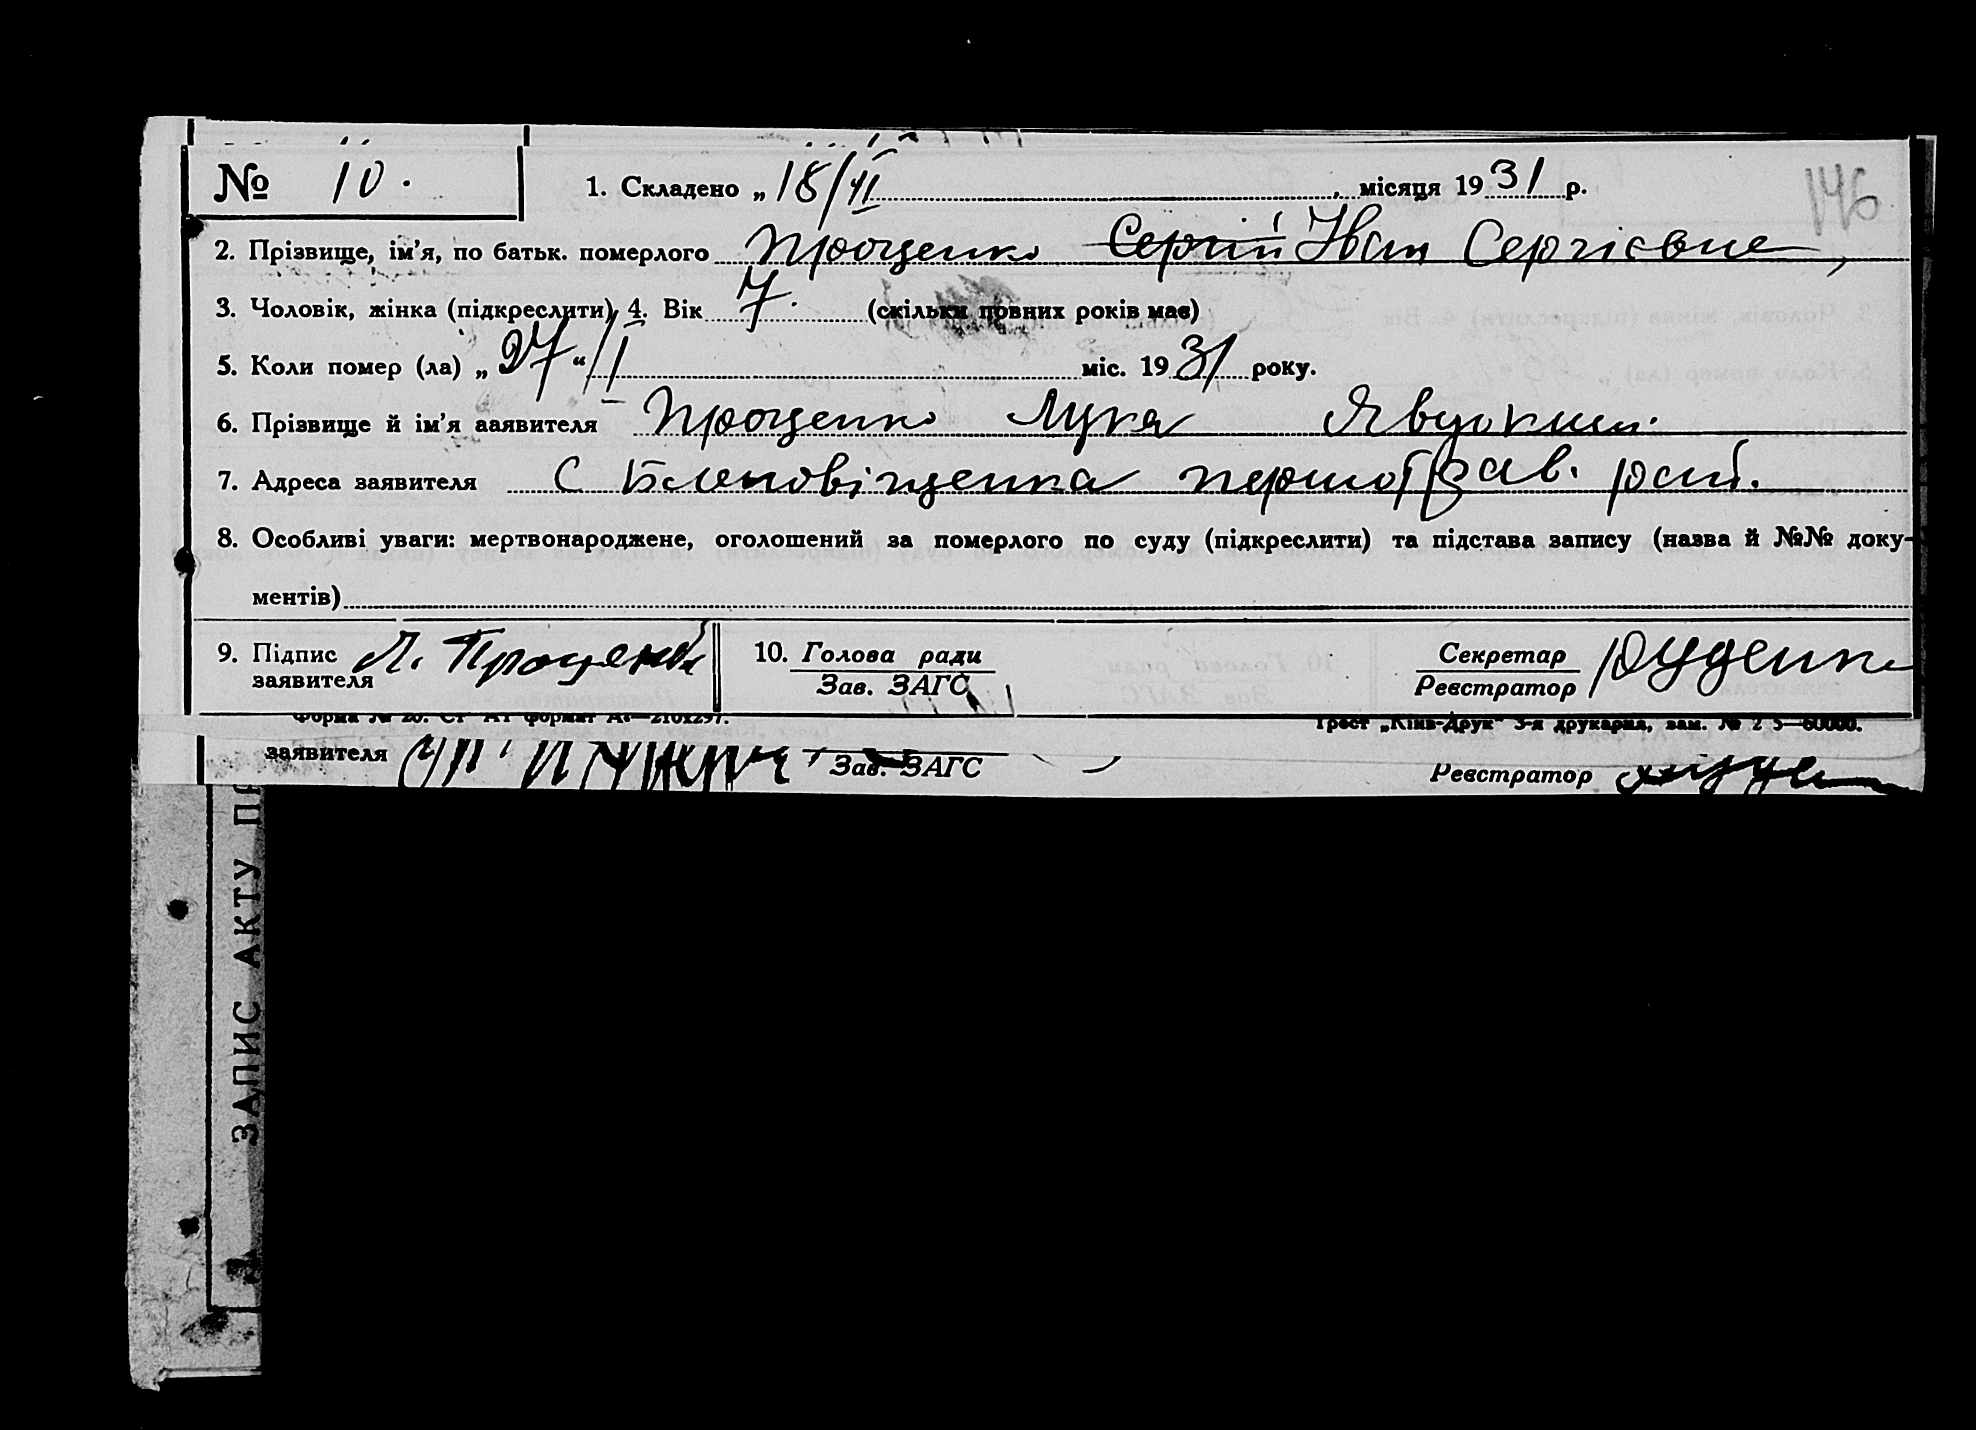 № 10.
1. Складено „18/II місяця 1931 р.
146
2. Прізвище, ім'я, по батьк. померлого Проценко Сергій Іван Сергієвне,
3. Чоловік, жінка (підкреслити) 4. Вік 7. (скільки повних років має)
5. Коли помер (ла) „27“/I міс. 1931 року.
6. Прізвище й ім'я заявителя Проценко Лука
7. Адреса заявителя С першотрав. рай.
8. Особливі уваги: мертвонароджене, оголошений за померлого по суду (підкреслити) та підстава запису (назва й №№ доку-
ментів)
9. Підпис заявителя Л. Проценко
10. Голова ради
Зав. ЗАГС
Секретар
Реєстратор Руденк
Форма № 20. Ст А4 формат
Трест „Київ-Друк" 3-я друкарня, зам. № 60000.
заявителя
Зав. ЗАГС
Реєстратор
ЗАПИС АКТУ